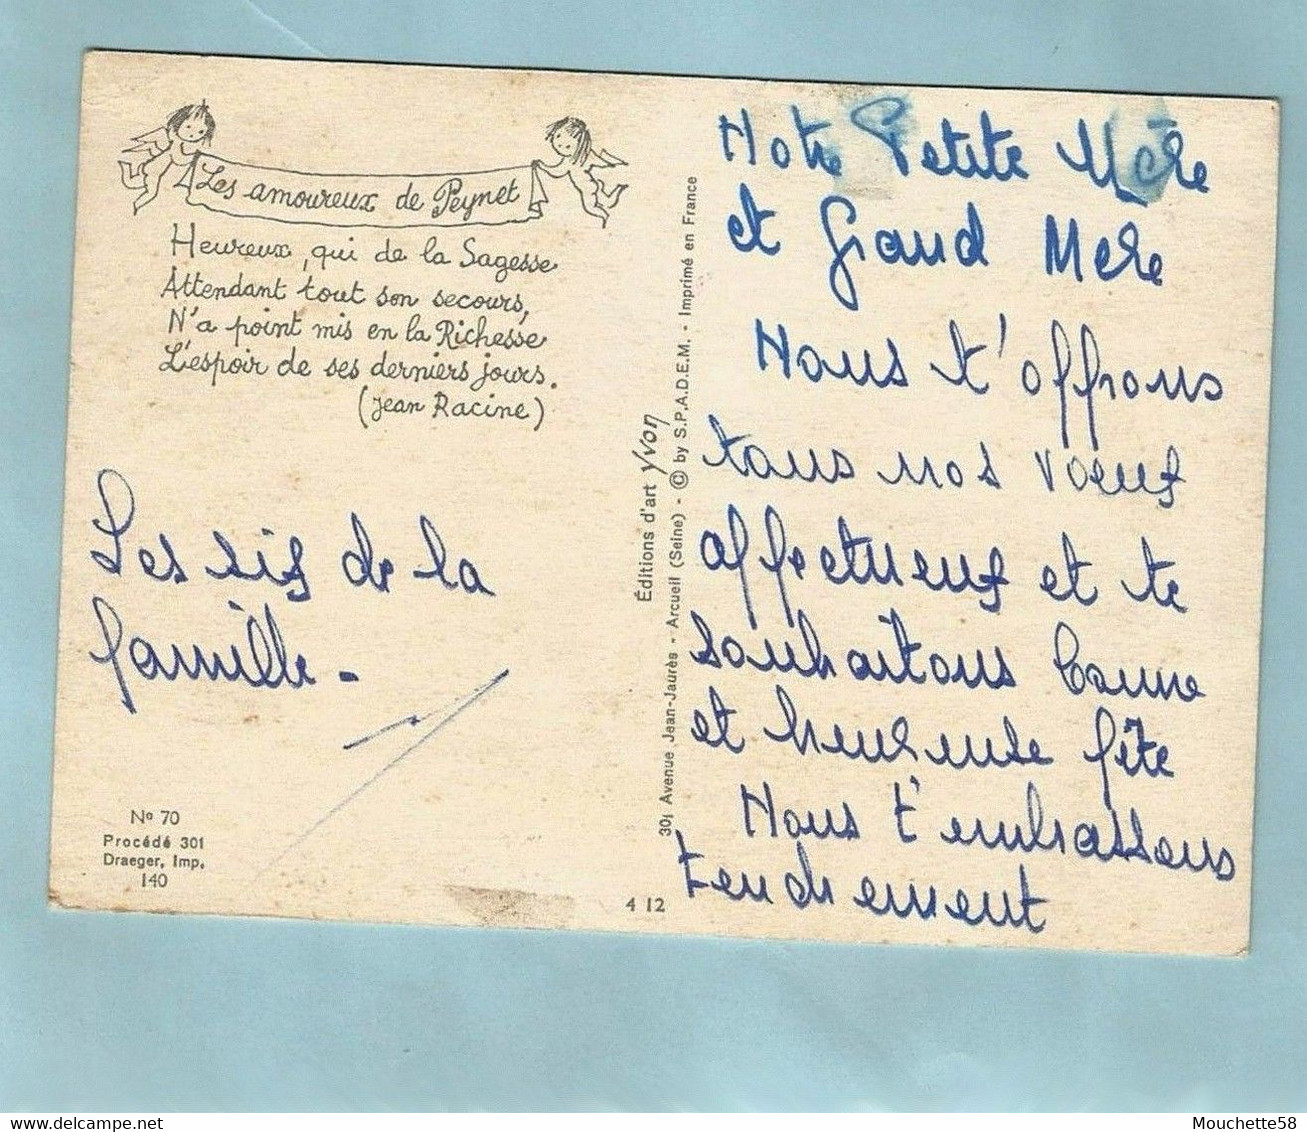 Les amoureux de Peynet
Heureux, qui de la Sagesse
Attendant tout son secours,
N'a point mis en la Richesse
L'espoir de ses derniers jours.
(Jean Racine)
Les six de la
famille -
No 70
Procédé 301
Draeger, Imp.
140
4 12
Éditions d'art Yvon
301 Avenue Jean-Jaurès - Arcueil (Seine) - © by S.P.A.D.E.M. - Imprimé en France
Notre Petite Mère
et Grand Mère
Nous t'offrons
tous nos voeux
affectueux et te
souhaitons bonne
et heureuse fête
Nous t'embrassons
tendrement
Mouchette58